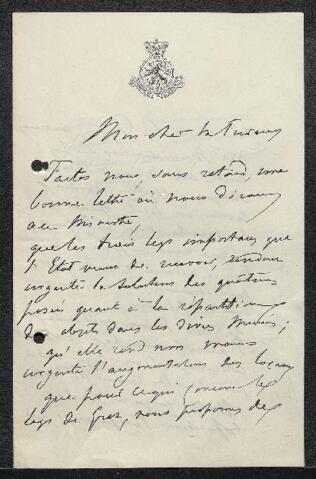 Mon cher
Faites nous, sans retard, une
bonne lettre où nous disons
au Ministre,
que les trois legs importans que
l'Etat vient de recevoir, rendent
urgente la solution des questions
posées quant à la répartition
des objets dans les divers Musées,
qu'elle rend non moins
urgente l'augmentation des locaux
que pour ce qui concerne le
legs de Grez, nous proposons de